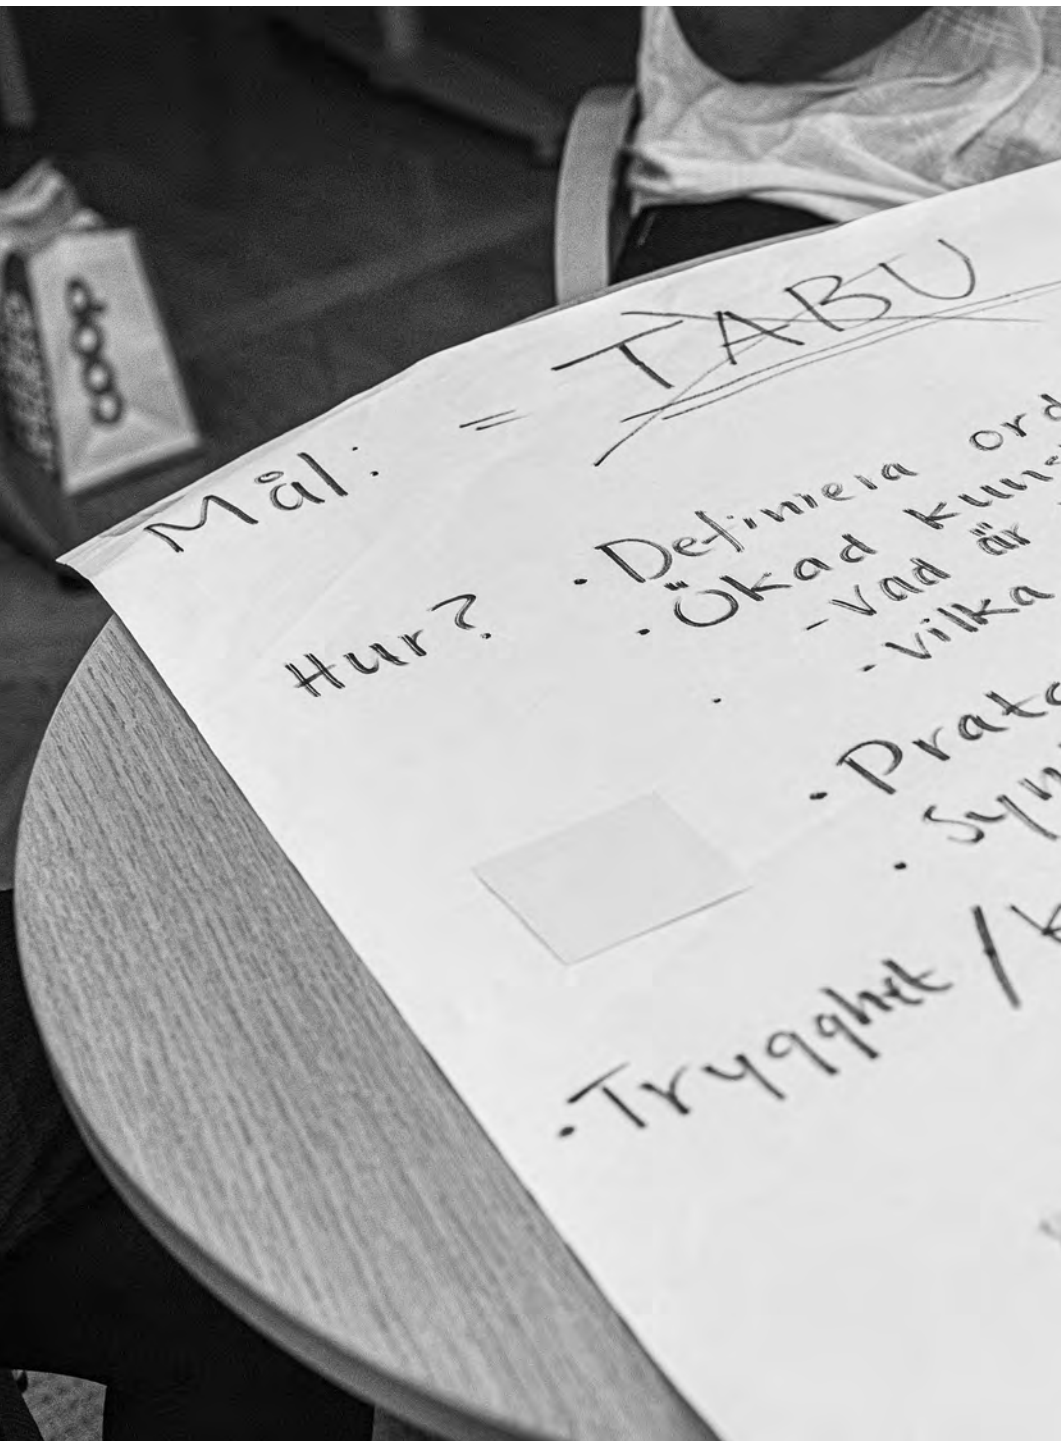 coop
Mål: = TABU
Hur? • Definiera ord
• Ökad kuns
- vad är
- vilka
•
• Prata
• Syn
• Trygghet / k